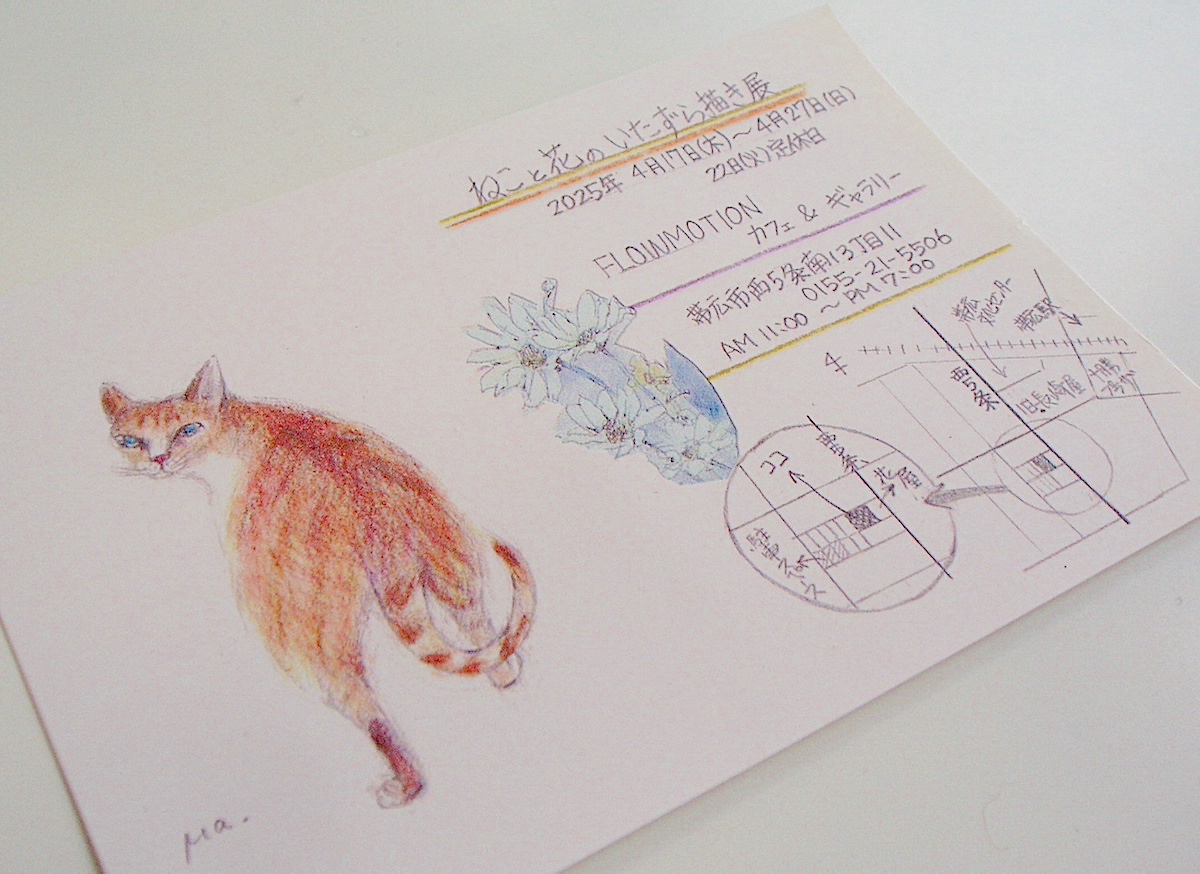 ねこと花のいたずら描き展
2025年 4月17日(木)~4月27日(日)
22日(火)定休日
FLOWMOTION
カフェ & ギャラリー
帯広市西5条南13丁目11
0155-21-5506
AM 11:00 ~ PM 7:00
帯広
帯広駅
西5条
旧長崎屋
西5条
ココ
北
駐車スペース
μa.